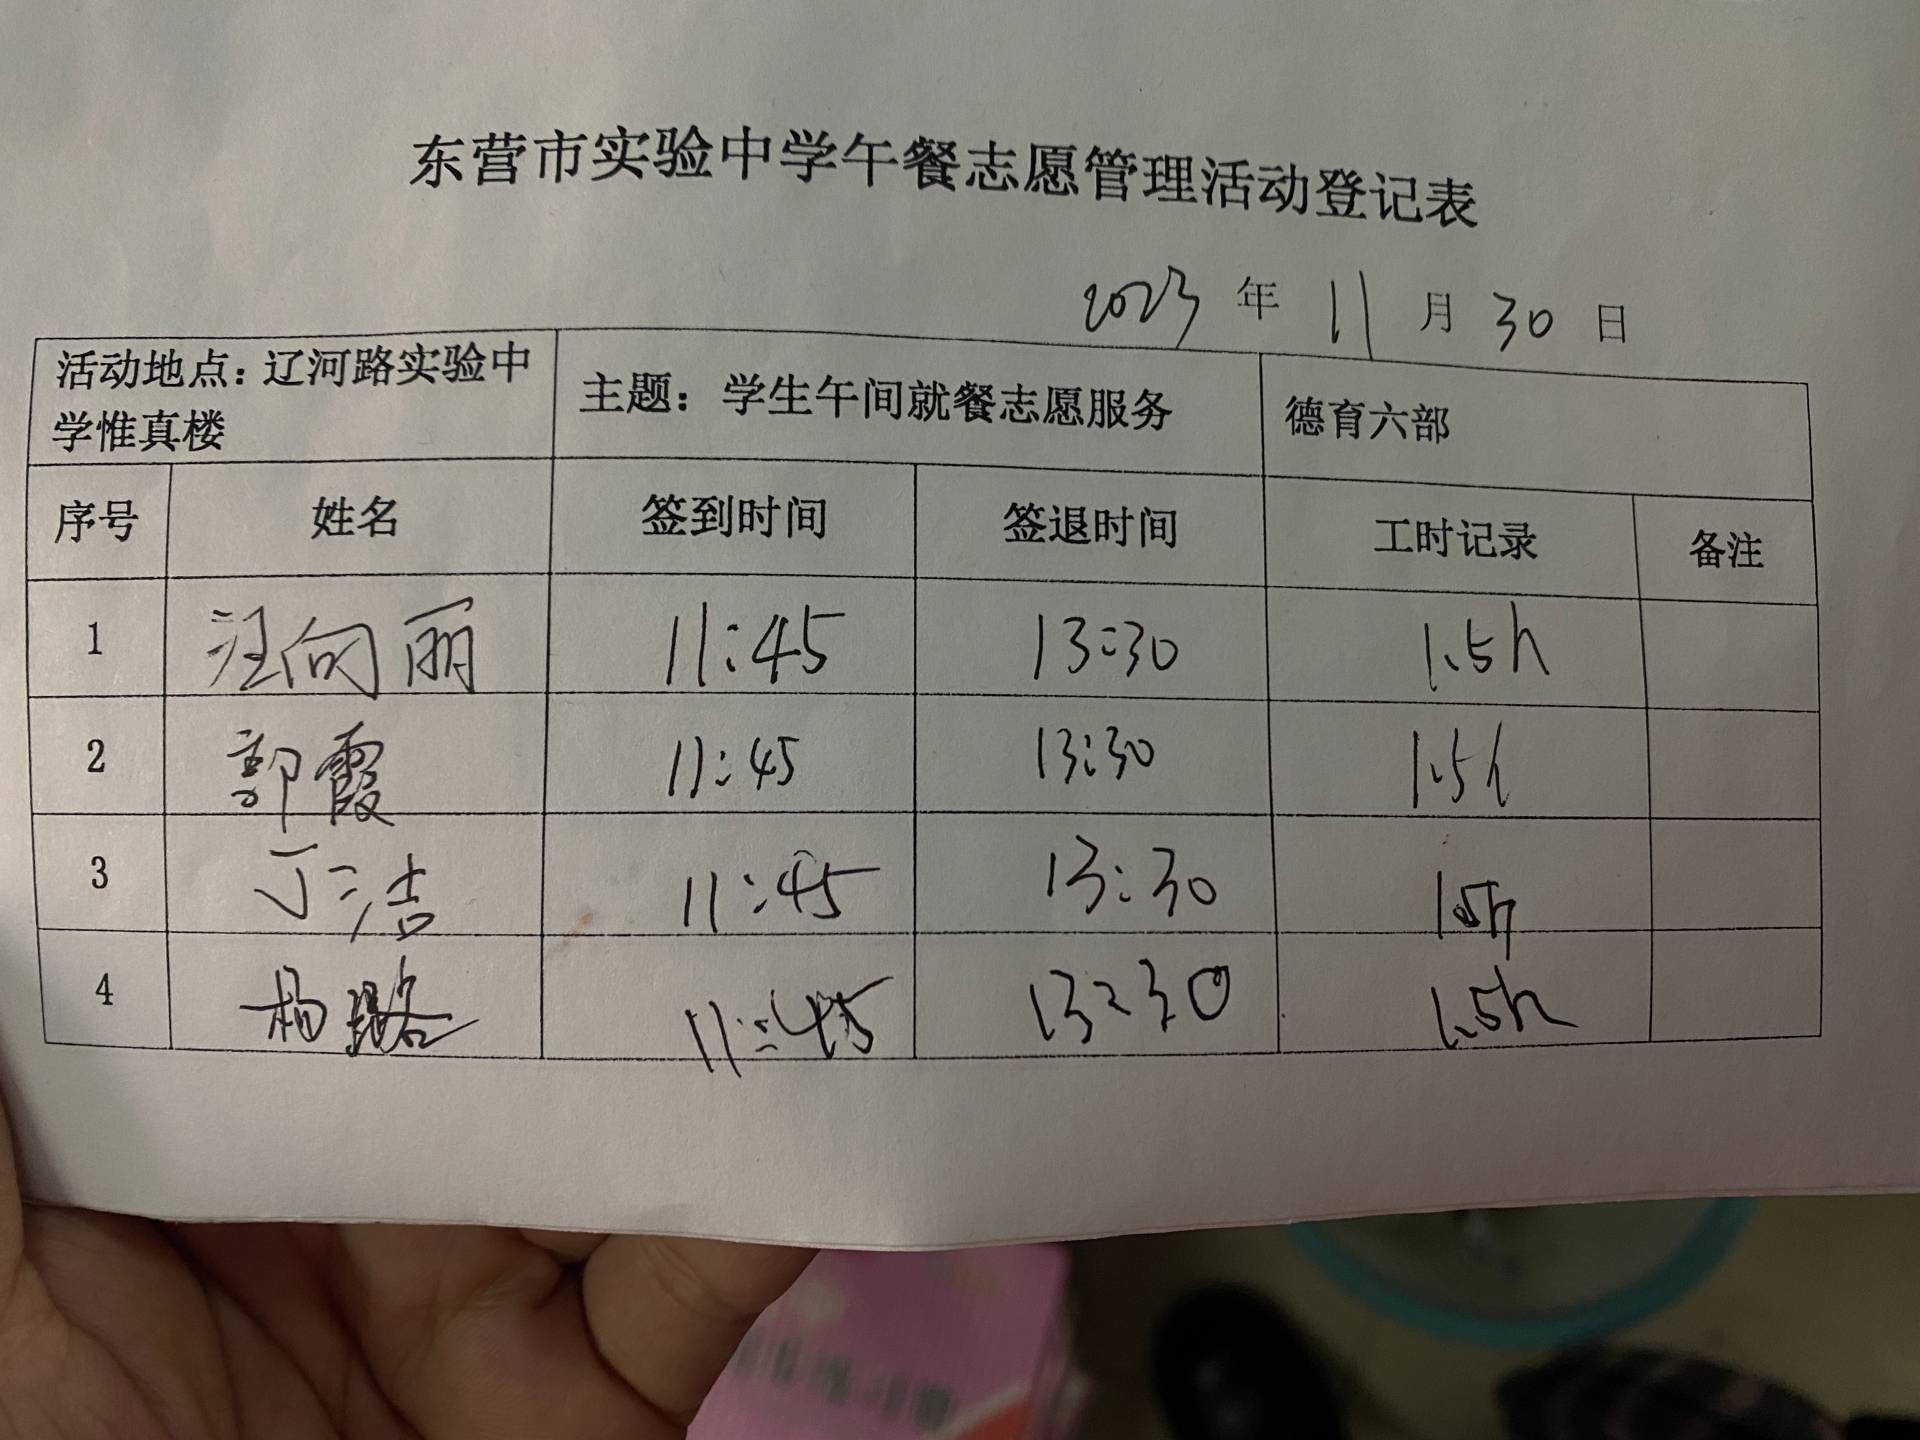 东营市实验中学午餐志愿管理活动登记表
2023 年 11 月 30 日
活动地点：辽河路实验中学惟真楼 主题：学生午间就餐志愿服务 德育六部
序号 姓名 签到时间 签退时间 工时记录 备注
1 汪向丽 11:45 13:30 1.5h
2 郭霞 11:45 13:30 1.5h
3 丁洁 11:45 13:30 1.5h
4 杨璐 11:45 13:30 1.5h